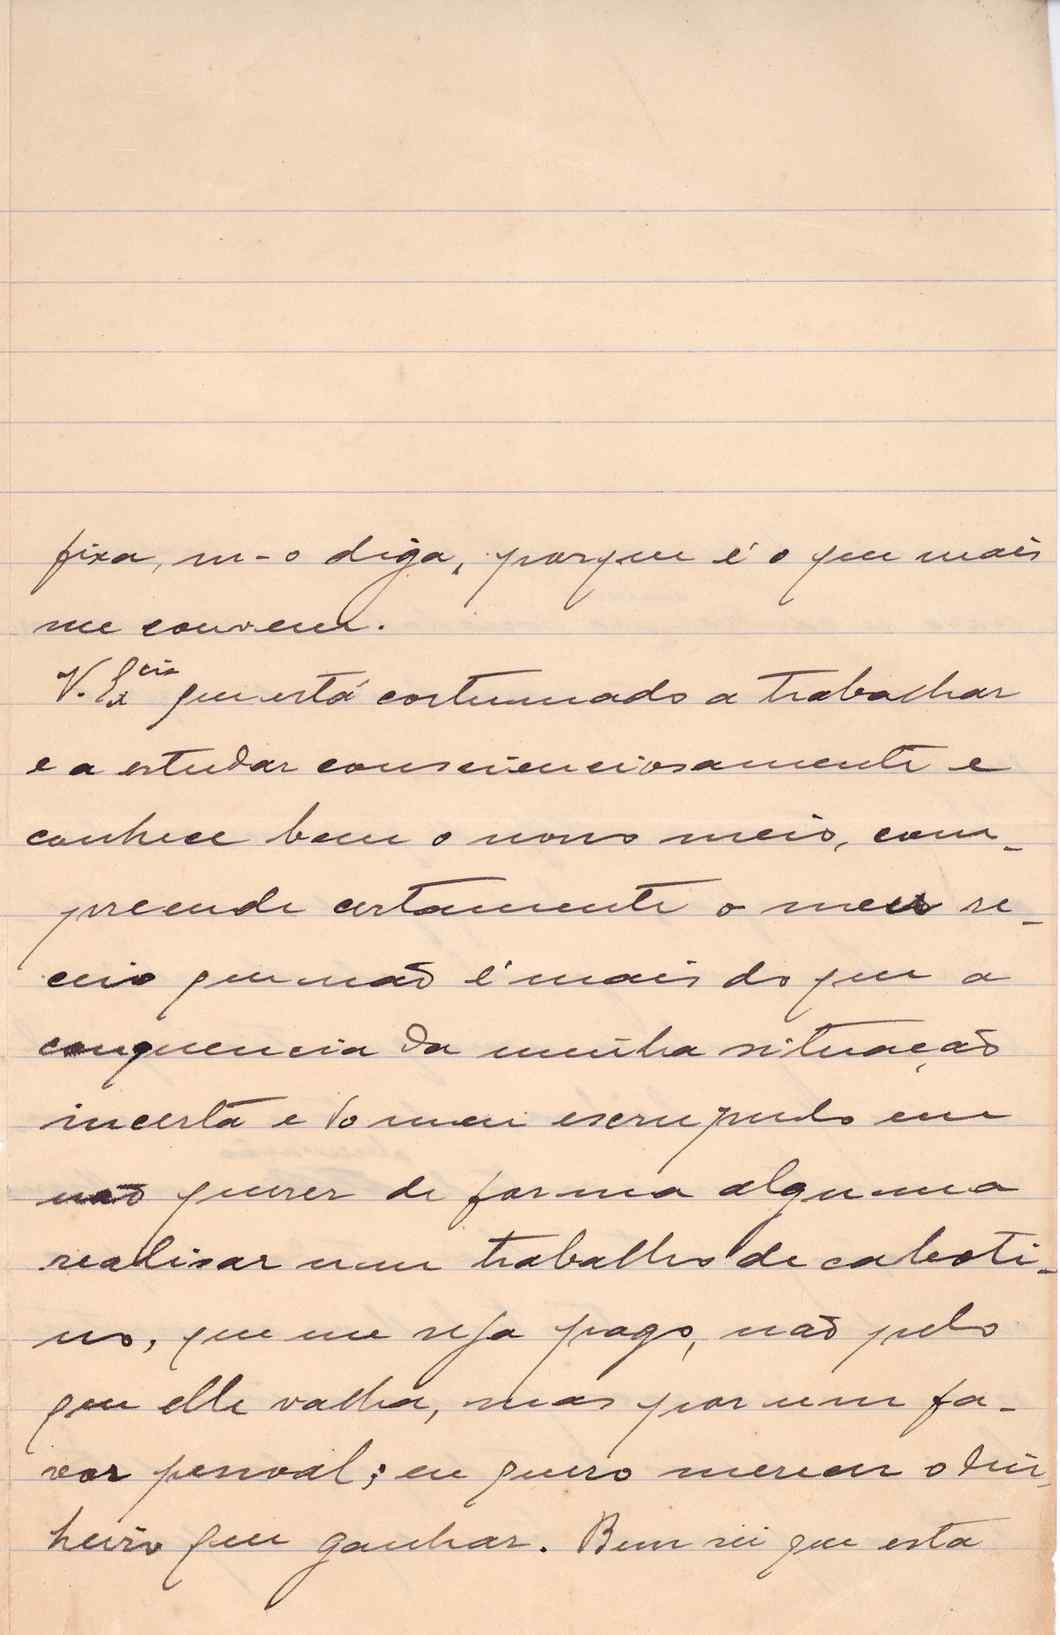 fixa, m-o diga, porque é o que mais
me convem.
V. Ex.cia que está costumado a trabalhar
e a estudar conscienciosamente e
conhece bem o nosso meio, com-
preende certamente o meu re-
ceio que não é mais do que a
conquencia da minha situação
incerta e do meu escrupulo em
não querer de forma alguma
realisar um trabalho de caboti-
no, que me seja pago, não pelo
que elle valha, mas por um fa-
vor pessoal; eu quero merecer o din-
heiro que ganhar. Bem sei que esta